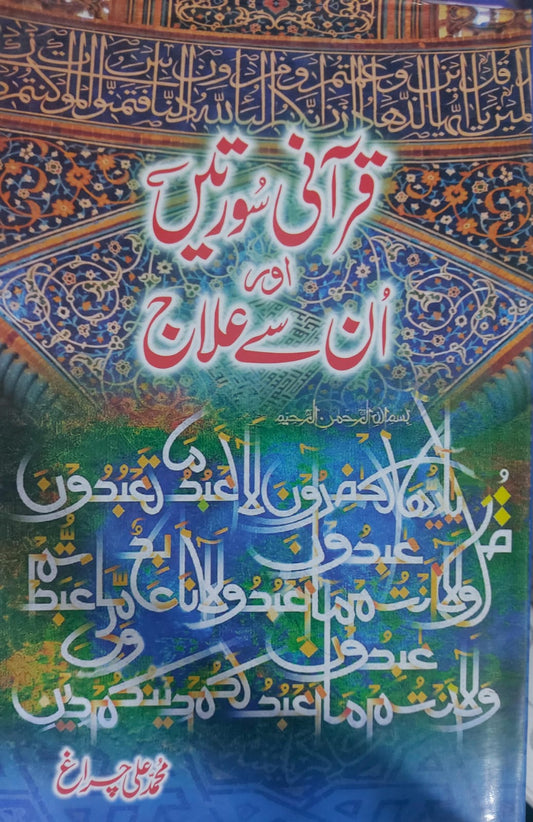 قرآنی سورتیں
اور
اُن سے علاج
بسم الله الرحمن الرحيم
قل يأيها الكفرون لا أعبد ما تعبدون
ولا أنتم عبدون ما أعبد ولا أنا عابد ما عبدتم
ولا أنتم عبدون ما أعبد لكم دينكم ولي دين
محمد علی چراغ